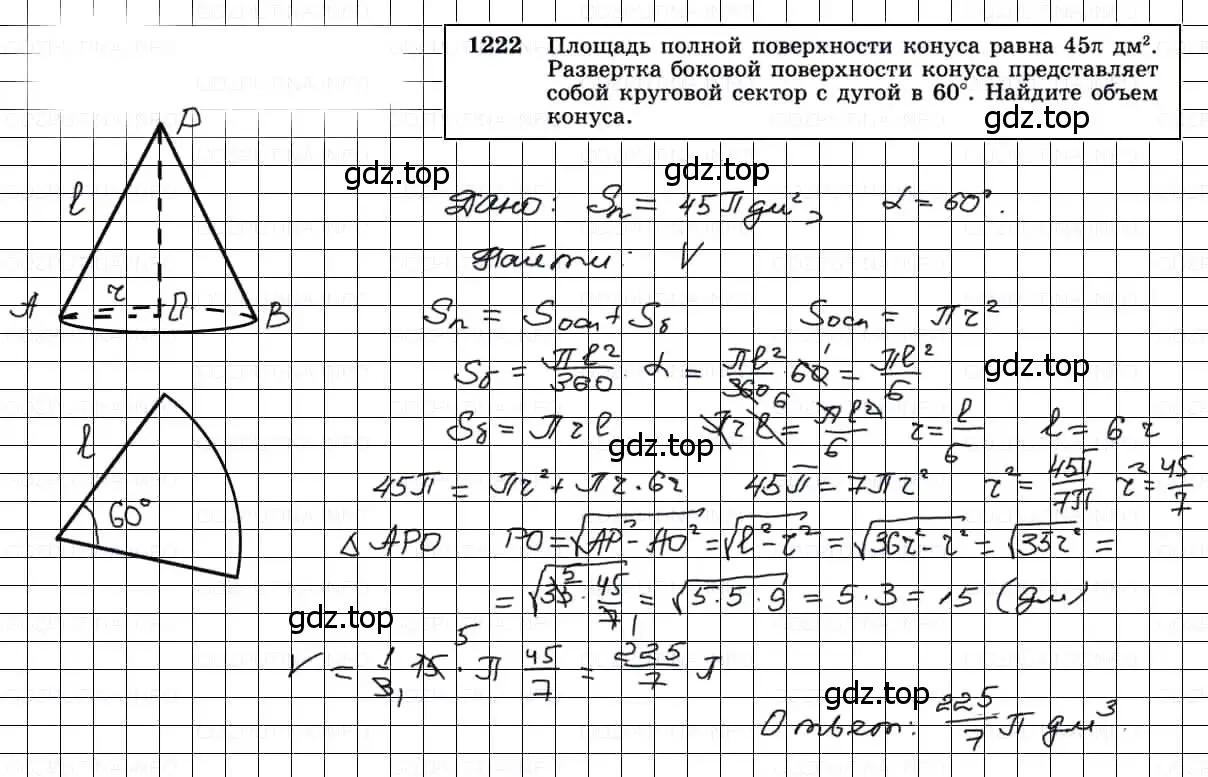 1222 Площадь полной поверхности конуса равна 45π дм².
Развертка боковой поверхности конуса представляет
собой круговой сектор с дугой в 60°. Найдите объем
конуса.
gdz.top
gdz.top gdz.top
P
l
Дано: Sп = 45π дм², α = 60°.
Найти: V
A r O B
Sп = Sосн + Sб Sосн = πr²
Sб = πl²/360 · α = πl²/360 6 · 60 1 = πl²/6
gdz.top
l
60°
Sб = πrl πrl = πl²/6 r = l/6 l = 6r
gdz.top
45π = πr² + πr·6r 45π = 7πr² r² = 45π/7π r² = 45/7
Δ APO PO = √(AP² - AO²) = √(l² - r²) = √(36r² - r²) = √(35r²) =
= √(35 5 · 45/7 1) = √(5·5·9) = 5·3 = 15 (дм)
gdz.top
V = 1/3 1 15 5 · π 45/7 = 225/7 π
gdz.top
Ответ: 225/7 π дм³.